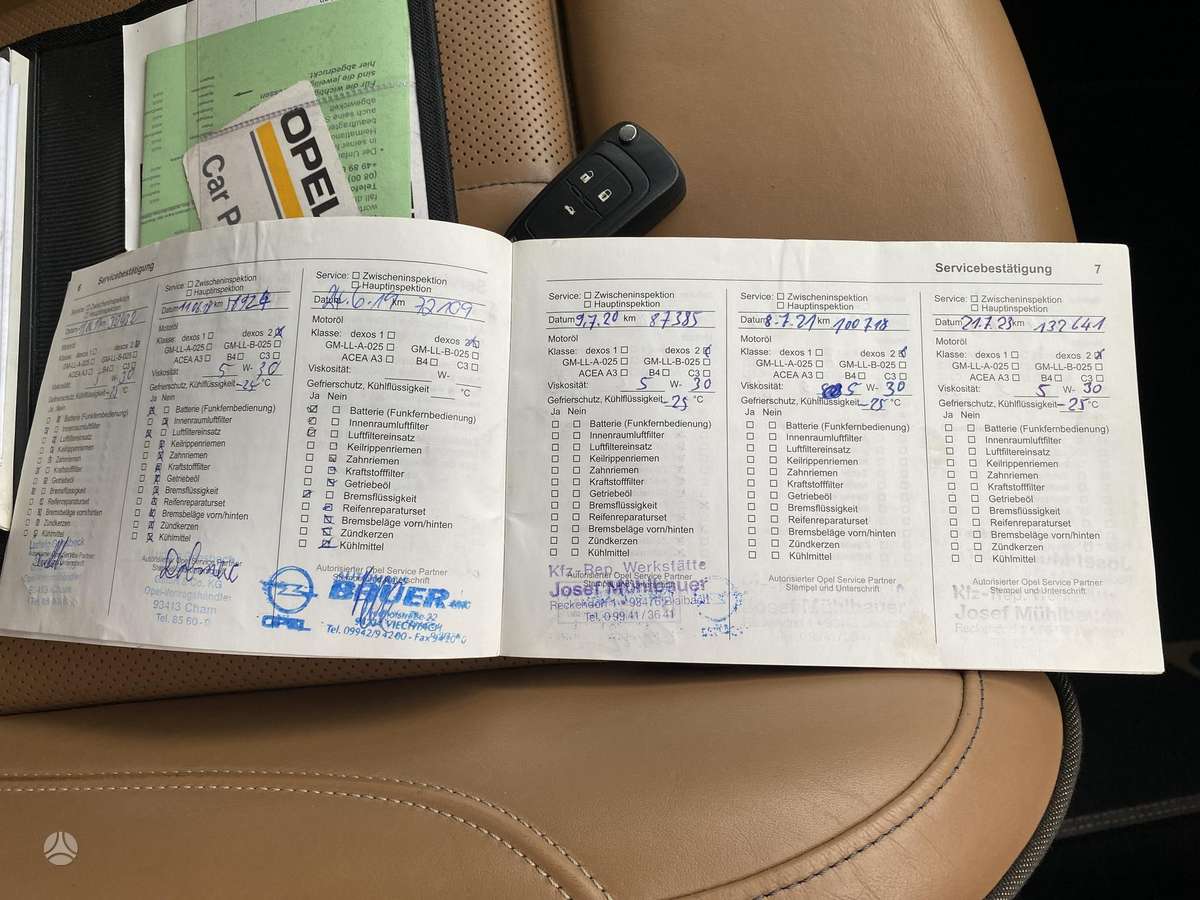 Für die wichtig
sind die jeweilig
hier abgedruckt
OPEL
Car P
6 Servicebestätigung
Service: Zwischeninspektion
Hauptinspektion
Datum
Motoröl
Klasse: dexos 1 dexos 2
GM-LL-A-025 GM-LL-B-025
ACEA A3 B4 C3
Viskosität: 5 W- 30
Gefrierschutz, Kühlflüssigkeit -25 °C
Ja Nein
Batterie (Funkfernbedienung)
Innenraumluftfilter
Luftfiltereinsatz
Keilrippenriemen
Zahnriemen
Kraftstofffilter
Getriebeöl
Bremsflüssigkeit
Reifenreparaturset
Bremsbeläge vorn/hinten
Zündkerzen
Kühlmittel
Service: Zwischeninspektion
Hauptinspektion
Datum km
Motoröl
Klasse: dexos 1 dexos 2
GM-LL-A-025 GM-LL-B-025
ACEA A3 B4 C3
Viskosität: 5 W- 30
Gefrierschutz, Kühlflüssigkeit -25 °C
Ja Nein
Batterie (Funkfernbedienung)
Innenraumluftfilter
Luftfiltereinsatz
Keilrippenriemen
Zahnriemen
Kraftstofffilter
Getriebeöl
Bremsflüssigkeit
Reifenreparaturset
Bremsbeläge vorn/hinten
Zündkerzen
Kühlmittel
Autorisierter Opel Service Partner
Opel-Vertragshändler
93413 Cham
Tel. 85 60 - 0
Service: Zwischeninspektion
Hauptinspektion
Datum 26.6.19 km 72109
Motoröl
Klasse: dexos 1 dexos 2
GM-LL-A-025 GM-LL-B-025
ACEA A3 B4 C3
Viskosität: W-
Gefrierschutz, Kühlflüssigkeit °C
Ja Nein
Batterie (Funkfernbedienung)
Innenraumluftfilter
Luftfiltereinsatz
Keilrippenriemen
Zahnriemen
Kraftstofffilter
Getriebeöl
Bremsflüssigkeit
Reifenreparaturset
Bremsbeläge vorn/hinten
Zündkerzen
Kühlmittel
Autorisierter Opel Service Partner
BAUER
OPEL
VIECHTACH
Tel. 09942/94200 - Fax
Servicebestätigung 7
Service: Zwischeninspektion
Hauptinspektion
Datum 9.7.20 km 87385
Motoröl
Klasse: dexos 1 dexos 2
GM-LL-A-025 GM-LL-B-025
ACEA A3 B4 C3
Viskosität: 5 W- 30
Gefrierschutz, Kühlflüssigkeit -25 °C
Ja Nein
Batterie (Funkfernbedienung)
Innenraumluftfilter
Luftfiltereinsatz
Keilrippenriemen
Zahnriemen
Kraftstofffilter
Getriebeöl
Bremsflüssigkeit
Reifenreparaturset
Bremsbeläge vorn/hinten
Zündkerzen
Kühlmittel
Kfz.-Rep. Werkstätte
Autorisierter Opel Service Partner
Josef Mühlbauer
Tel. 0 99 41 / 36 41
Service: Zwischeninspektion
Hauptinspektion
Datum 8.7.21 km 100718
Motoröl
Klasse: dexos 1 dexos 2
GM-LL-A-025 GM-LL-B-025
ACEA A3 B4 C3
Viskosität: 5 W- 30
Gefrierschutz, Kühlflüssigkeit -25 °C
Ja Nein
Batterie (Funkfernbedienung)
Innenraumluftfilter
Luftfiltereinsatz
Keilrippenriemen
Zahnriemen
Kraftstofffilter
Getriebeöl
Bremsflüssigkeit
Reifenreparaturset
Bremsbeläge vorn/hinten
Zündkerzen
Kühlmittel
Autorisierter Opel Service Partner
Stempel und Unterschrift
Josef Mühlbauer
Service: Zwischeninspektion
Hauptinspektion
Datum 21.7.23 km 132641
Motoröl
Klasse: dexos 1 dexos 2
GM-LL-A-025 GM-LL-B-025
ACEA A3 B4 C3
Viskosität: 5 W- 30
Gefrierschutz, Kühlflüssigkeit -25 °C
Ja Nein
Batterie (Funkfernbedienung)
Innenraumluftfilter
Luftfiltereinsatz
Keilrippenriemen
Zahnriemen
Kraftstofffilter
Getriebeöl
Bremsflüssigkeit
Reifenreparaturset
Bremsbeläge vorn/hinten
Zündkerzen
Kühlmittel
Autorisierter Opel Service Partner
Stempel und Unterschrift
Josef Mühlbauer